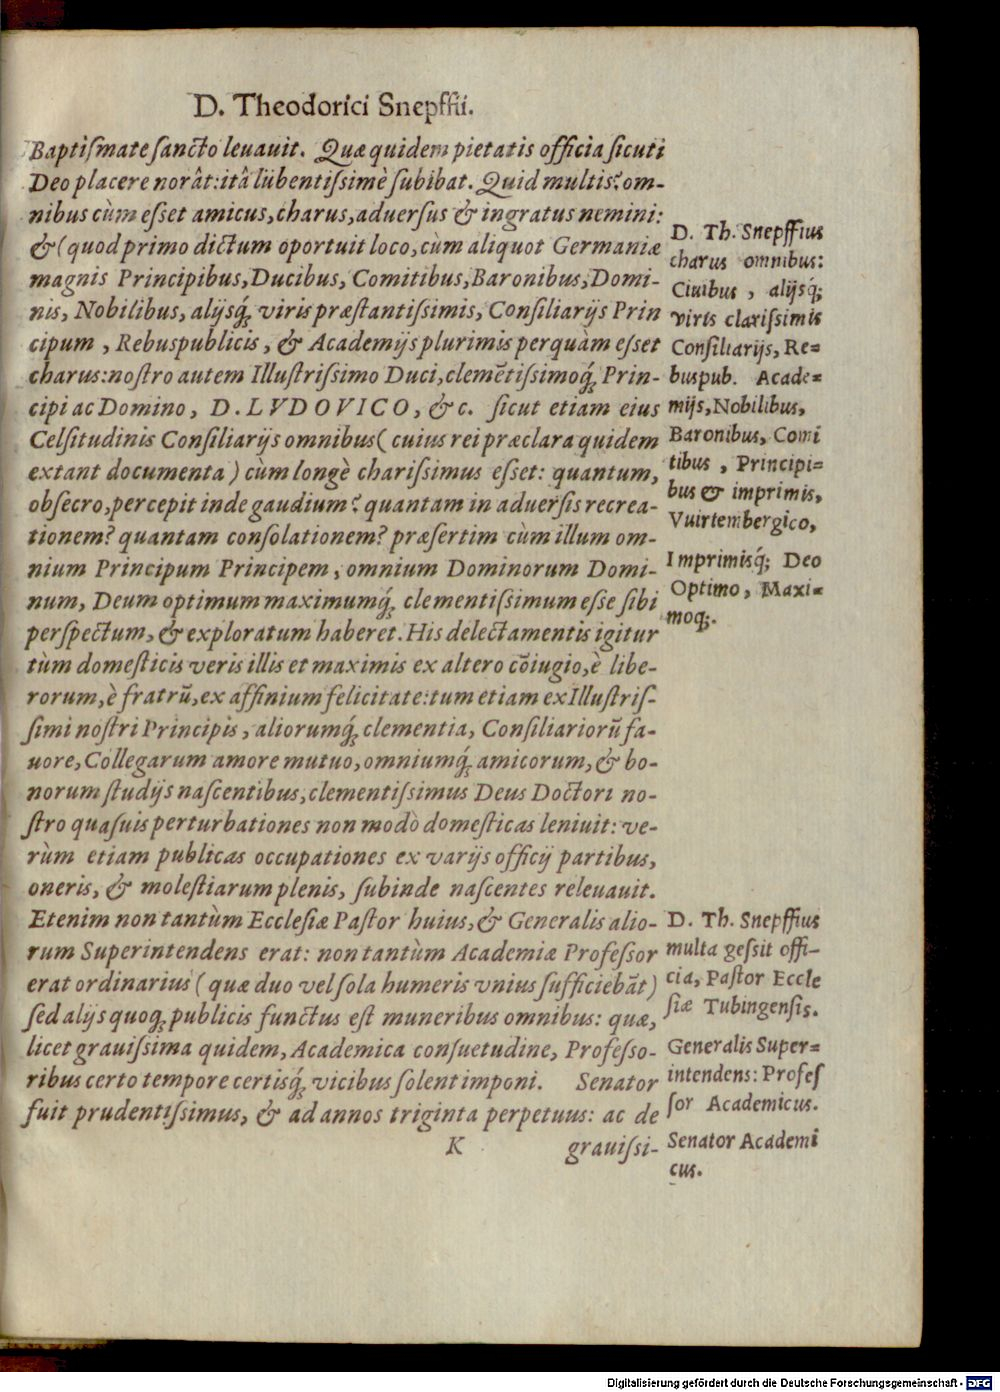 D. Theodorici Snepffii.
Baptiſmate ſancto leuauit. Quæ quidem pietatis officia ſicuti
Deo placere norât: itâ lubentiſsimè ſubibat. Quid multis? om-
nibus cùm eſset amicus, charus, aduerſus & ingratus nemini:
& (quod primo dictum oportuit loco, cùm aliquot Germaniæ
magnis Principibus, Ducibus, Comitibus, Baronibus, Domi-
nis, Nobilibus, alijsq́; viris præſtantiſsimis, Conſiliarijs Prin
cipum, Rebuspublicis, & Academijs plurimis perquàm eſset
charus: noſtro autem Illuſtriſsimo Duci, clemẽtiſsimoq́; Prin-
cipi ac Domino, D. LVDOVICO, &c. ſicut etiam eius
Celſitudinis Conſiliarijs omnibus (cuius rei præclara quidem
extant documenta) cùm longè chariſsimus eſset: quantum,
obſecro, percepit inde gaudium? quantam in aduerſis recrea-
tionem? quantam conſolationem? præſertim cùm illum om-
nium Principum Principem, omnium Dominorum Domi-
num, Deum optimum maximumq́; clementiſsimum eſse ſibi
perſpectum, & exploratum haberet. His delectamentis igitur
tùm domeſticis veris illis et maximis ex altero cõiugio, è libe-
rorum, è fratrũ, ex affinium felicitate: tum etiam ex Illuſtriſ-
ſimi noſtri Principis, aliorumq́; clementia, Conſiliariorũ fa-
uore, Collegarum amore mutuo, omniumq́; amicorum, & bo-
norum ſtudijs naſcentibus, clementiſsimus Deus Doctori no-
ſtro quaſuis perturbationes non modò domeſticas leniuit: ve-
rùm etiam publicas occupationes ex varijs officij partibus,
oneris, & moleſtiarum plenis, ſubinde naſcentes releuauit.
Etenim non tantùm Eccleſiæ Paſtor huius, & Generalis alio-
rum Superintendens erat: non tantùm Academiæ Profeſſor
erat ordinarius (quæ duo vel ſola humeris vnius ſufficiebãt)
ſed alijs quoq; publicis functus eſt muneribus omnibus: quæ,
licet grauiſsima quidem, Academica conſuetudine, Profeſſo-
ribus certo tempore certisq́; vicibus ſolent imponi. Senator
fuit prudentiſsimus, & ad annos triginta perpetuus: ac de
K grauiſsi-
D. Th. Snepffius
charus omnibus:
Ciuibus, alijsq;
viris clariſsimis
Conſiliarijs, Re-
buspub. Acade-
mijs, Nobilibus,
Baronibus, Comi
tibus, Principi-
bus & imprimis,
Vuirtembergico,
Imprimisq́; Deo
Optimo, Maxi-
moq;.
D. Th. Snepffius
multa geſsit offi-
cia, Paſtor Eccle
ſiæ Tubingenſis.
Generalis Super-
intendens: Profeſ
ſor Academicus.
Senator Academi
cus.
Digitalisierung gefördert durch die Deutsche Forschungsgemeinschaft - DFG